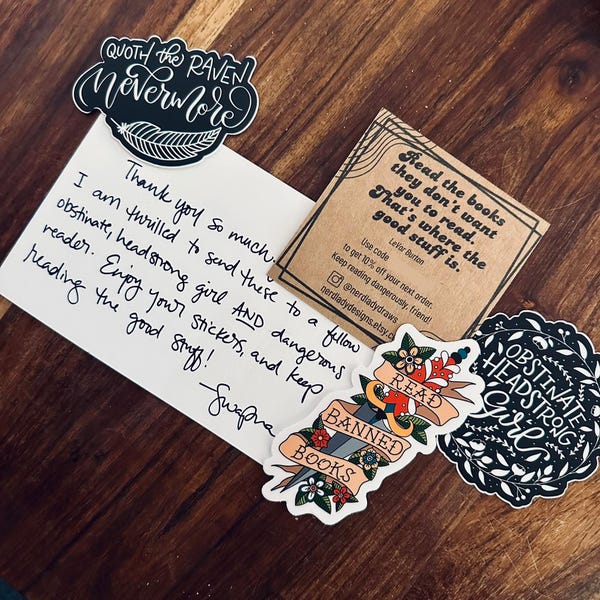 QUOTH the RAVEN
Nevermore
Thank you so much.
I am thrilled to send these to a fellow
obstinate, headstrong girl AND dangerous
reader. Enjoy your stickers, and keep
reading the good stuff!
—Swapna
Read the books
they don't want
you to read.
That's where the
good stuff is.
LeVar Burton
Use code
to get 10% off your next order.
Keep reading dangerously, friend!
@nerdladydraws
nerdladydesigns.etsy.c
READ
BANNED
BOOKS
OBSTINATE
HEADSTRONG
girl